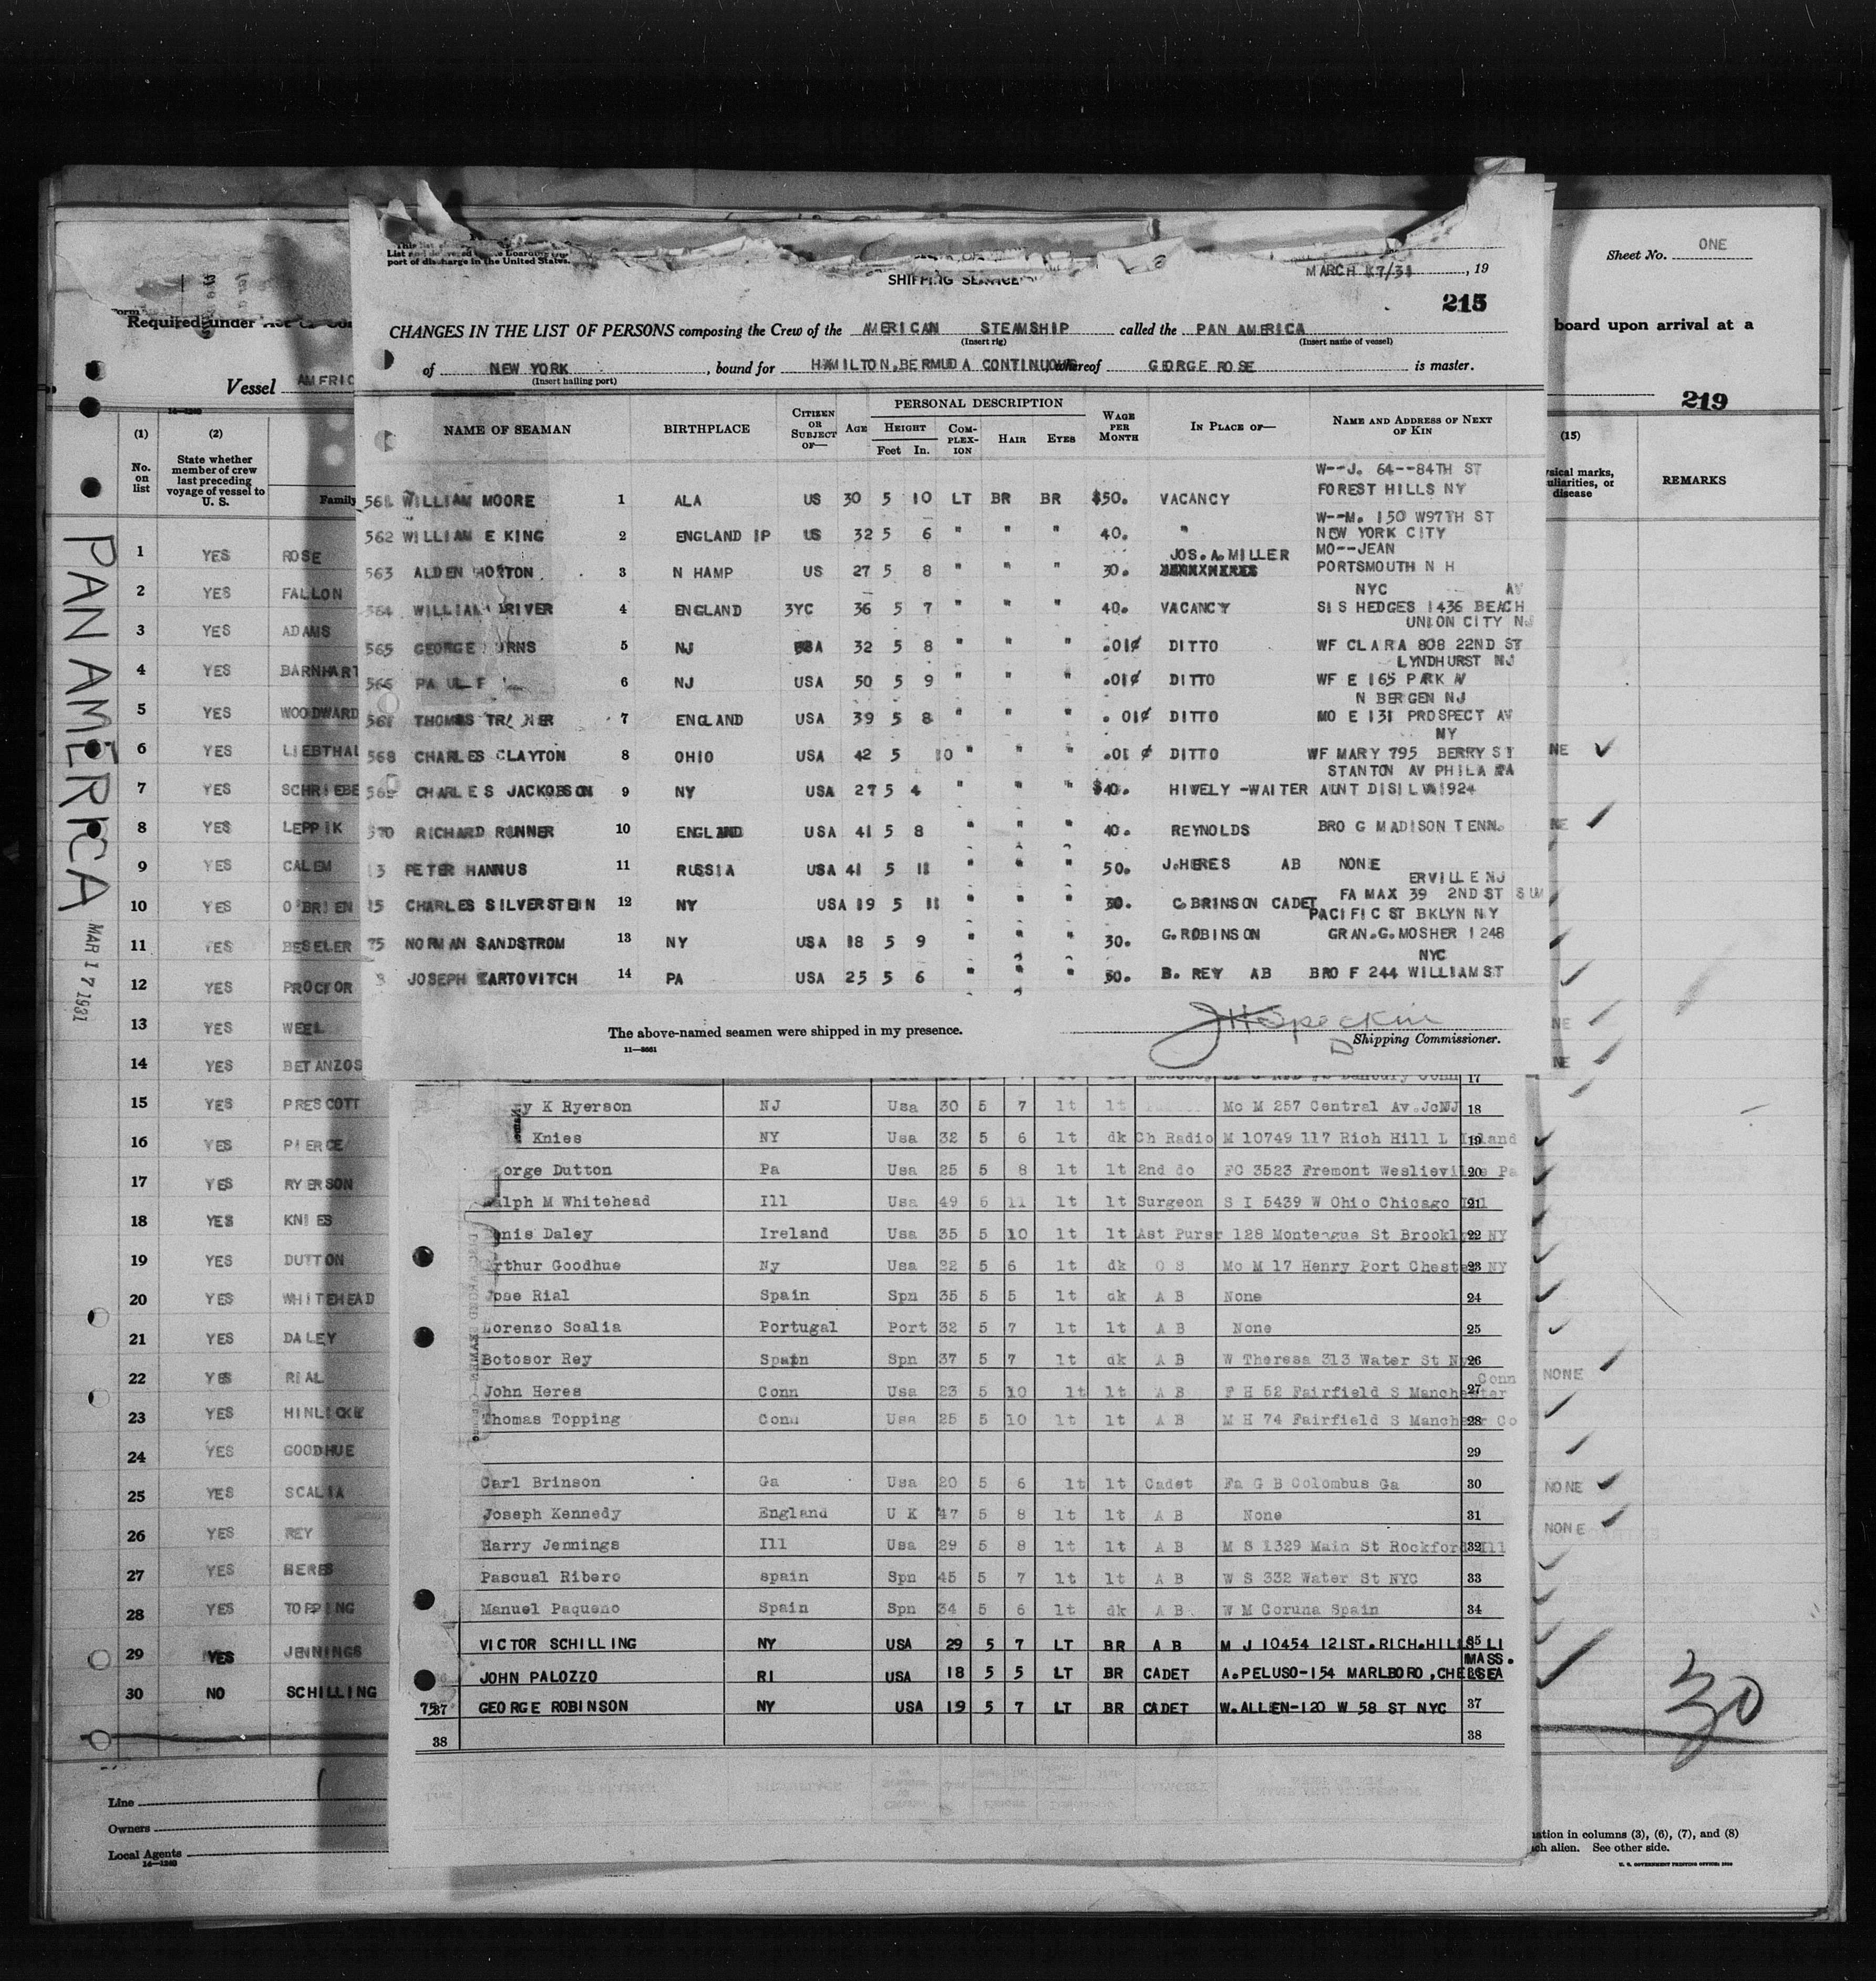 Sheet No. ONE
List and delivered to the Boarding
port of discharge in the United States.
SHIPPING SERVICE
MARCH 17/31, 19
215
Required under Act
board upon arrival at a
CHANGES IN THE LIST OF PERSONS composing the Crew of the AMERICAN STEAMSHIP called the PAN AMERICA
(Insert rig) (Insert name of vessel)
of NEW YORK, bound for HAMILTON, BERMUDA CONTINUOUS whereof GEORGE ROSE is master.
(Insert hailing port)
Vessel AMERIC
219
NAME OF SEAMAN BIRTHPLACE CITIZEN OR SUBJECT OF— AGE PERSONAL DESCRIPTION HEIGHT Feet In. COMPLEXION HAIR EYES WAGE PER MONTH IN PLACE OF— NAME AND ADDRESS OF NEXT OF KIN
W--J. 64--84TH ST
WILLIAM MOORE 1 ALA US 30 5 10 LT BR BR $50. VACANCY FOREST HILLS NY
W--M. 150 W97TH ST
562 WILLIAM E KING 2 ENGLAND IP US 32 5 6 " " " 40. " NEW YORK CITY
JOS. A. MILLER MO--JEAN
563 ALDEN HORTON 3 N HAMP US 27 5 8 " " " 30. PORTSMOUTH N H
NYC AV
564 WILLIAM DRIVER 4 ENGLAND 3YC 36 5 7 " " " 40. VACANCY SIS HEDGES 1436 BEACH
UNION CITY NJ
565 GEORGE 5 NJ USA 32 5 8 " " " .01¢ DITTO WF CLARA 808 22ND ST
LYNDHURST NJ
566 PAUL F 6 NJ USA 50 5 9 " " " .01¢ DITTO WF E 165 PARK AV
N BERGEN NJ
THOMAS 7 ENGLAND USA 39 5 8 " " " .01¢ DITTO MO E 131 PROSPECT AV
NY
568 CHARLES CLAYTON 8 OHIO USA 42 5 10 " " " .01¢ DITTO WF MARY 795 BERRY ST
STANTON AV PHILA PA
CHARLES JACKOBSON 9 NY USA 27 5 4 " " " $40. HIVELY -WAITER AUNT DISILVA 1924
570 RICHARD RUNNER 10 ENGLAND USA 41 5 8 " " " 40. REYNOLDS BRO G MADISON TENN.
3 PETER HANNUS 11 RUSSIA USA 41 5 11 " " " 50. J.HERES AB NONE
ERVILLE NJ
CHARLES SILVERSTEIN 12 NY USA 19 5 11 " " " 30. C.BRINSON CADET FA MAX 39 2ND ST SUM
PACIFIC ST BKLYN NY
75 NORMAN SANDSTROM 13 NY USA 18 5 9 " " " 30. G.ROBINSON GRAN.G.MOSHER 1248
NYC
JOSEPH ZARTOVITCH 14 PA USA 25 5 6 " " " 50. B. REY AB BRO F 244 WILLIAM ST
The above-named seamen were shipped in my presence.
Shipping Commissioner.
11—3661
17
y K Ryerson NJ Usa 30 5 7 lt lt Mo M 257 Central Av.JcNJ 18
Knies NY Usa 32 5 6 lt dk Ch Radio M 10749 117 Rich Hill L Island 19
orge Dutton Pa Usa 25 5 8 lt lt 2nd do FC 3523 Fremont Weslieville Pa 20
alph M Whitehead Ill Usa 49 5 11 lt lt Surgeon S I 5439 W Ohio Chicago Ill 21
enis Daley Ireland Usa 35 5 10 lt lt Ast Purser 128 Monteague St Brooklyn NY 22
rthur Goodhue Ny Usa 22 5 6 lt dk O S Mo M 17 Henry Port Chester NY 23
Jose Rial Spain Spn 35 5 5 lt dk A B None 24
Lorenzo Scalia Portugal Port 32 5 7 lt lt A B None 25
Botosor Rey Spain Spn 37 5 7 lt dk A B W Theresa 313 Water St 26
Conn
John Heres Conn Usa 23 5 10 lt lt A B F H 52 Fairfield S Manchester 27
Thomas Topping Conn Usa 25 5 10 lt lt A B M H 74 Fairfield S Co 28
29
Carl Brinson Ga Usa 20 5 6 lt lt Cadet Fa G B Colombus Ga 30
Joseph Kennedy England U K 47 5 8 lt lt A B None 31
Harry Jennings Ill Usa 29 5 8 lt lt A B M S 1329 Main St Rockford Ill 32
Pascual Ribero spain Spn 45 5 7 lt lt A B W S 332 Water St NYC 33
Manuel Paqueno Spain Spn 34 5 6 lt dk A B W M Coruna Spain 34
VICTOR SCHILLING NY USA 29 5 7 LT BR A B M J 10454 121ST.RICH.HILLS LI 35
MASS.
JOHN PALOZZO RI USA 18 5 5 LT BR CADET A.PELUSO-154 MARLBORO,CHELSEA
37 GEORGE ROBINSON NY USA 19 5 7 LT BR CADET W.ALLEN-120 W 58 ST NYC 37
38 38
(1) No. on list
(2) State whether member of crew last preceding voyage of vessel to U. S.
Family
(15)
sical marks,
uliarities, or
disease
REMARKS
1 YES ROSE
2 YES FALLON
3 YES ADAMS
4 YES BARNHART
5 YES WOODWARD
6 YES LIEBTHAL
7 YES SCHRIEBE
8 YES LEPPIK
9 YES CALEM
10 YES O'BRIEN
11 YES BESELER
12 YES PROCTOR
13 YES WEEL
14 YES BETANZOS
15 YES PRESCOTT
16 YES PIERCE
17 YES RYERSON
18 YES KNIES
19 YES DUTTON
20 YES WHITEHEAD
21 YES DALEY
22 YES RIAL NONE
23 YES
24 YES GOODHUE
25 YES SCALIA NONE
26 YES REY NONE
27 YES HERES
28 YES TOPPING
29 YES JENNINGS
30 NO SCHILLING
30
PAN AMERICA
MAR 17 1931
Line
Owners
Local Agents
14—1240
ation in columns (3), (6), (7), and (8)
ach alien. See other side.
U. S. GOVERNMENT PRINTING OFFICE